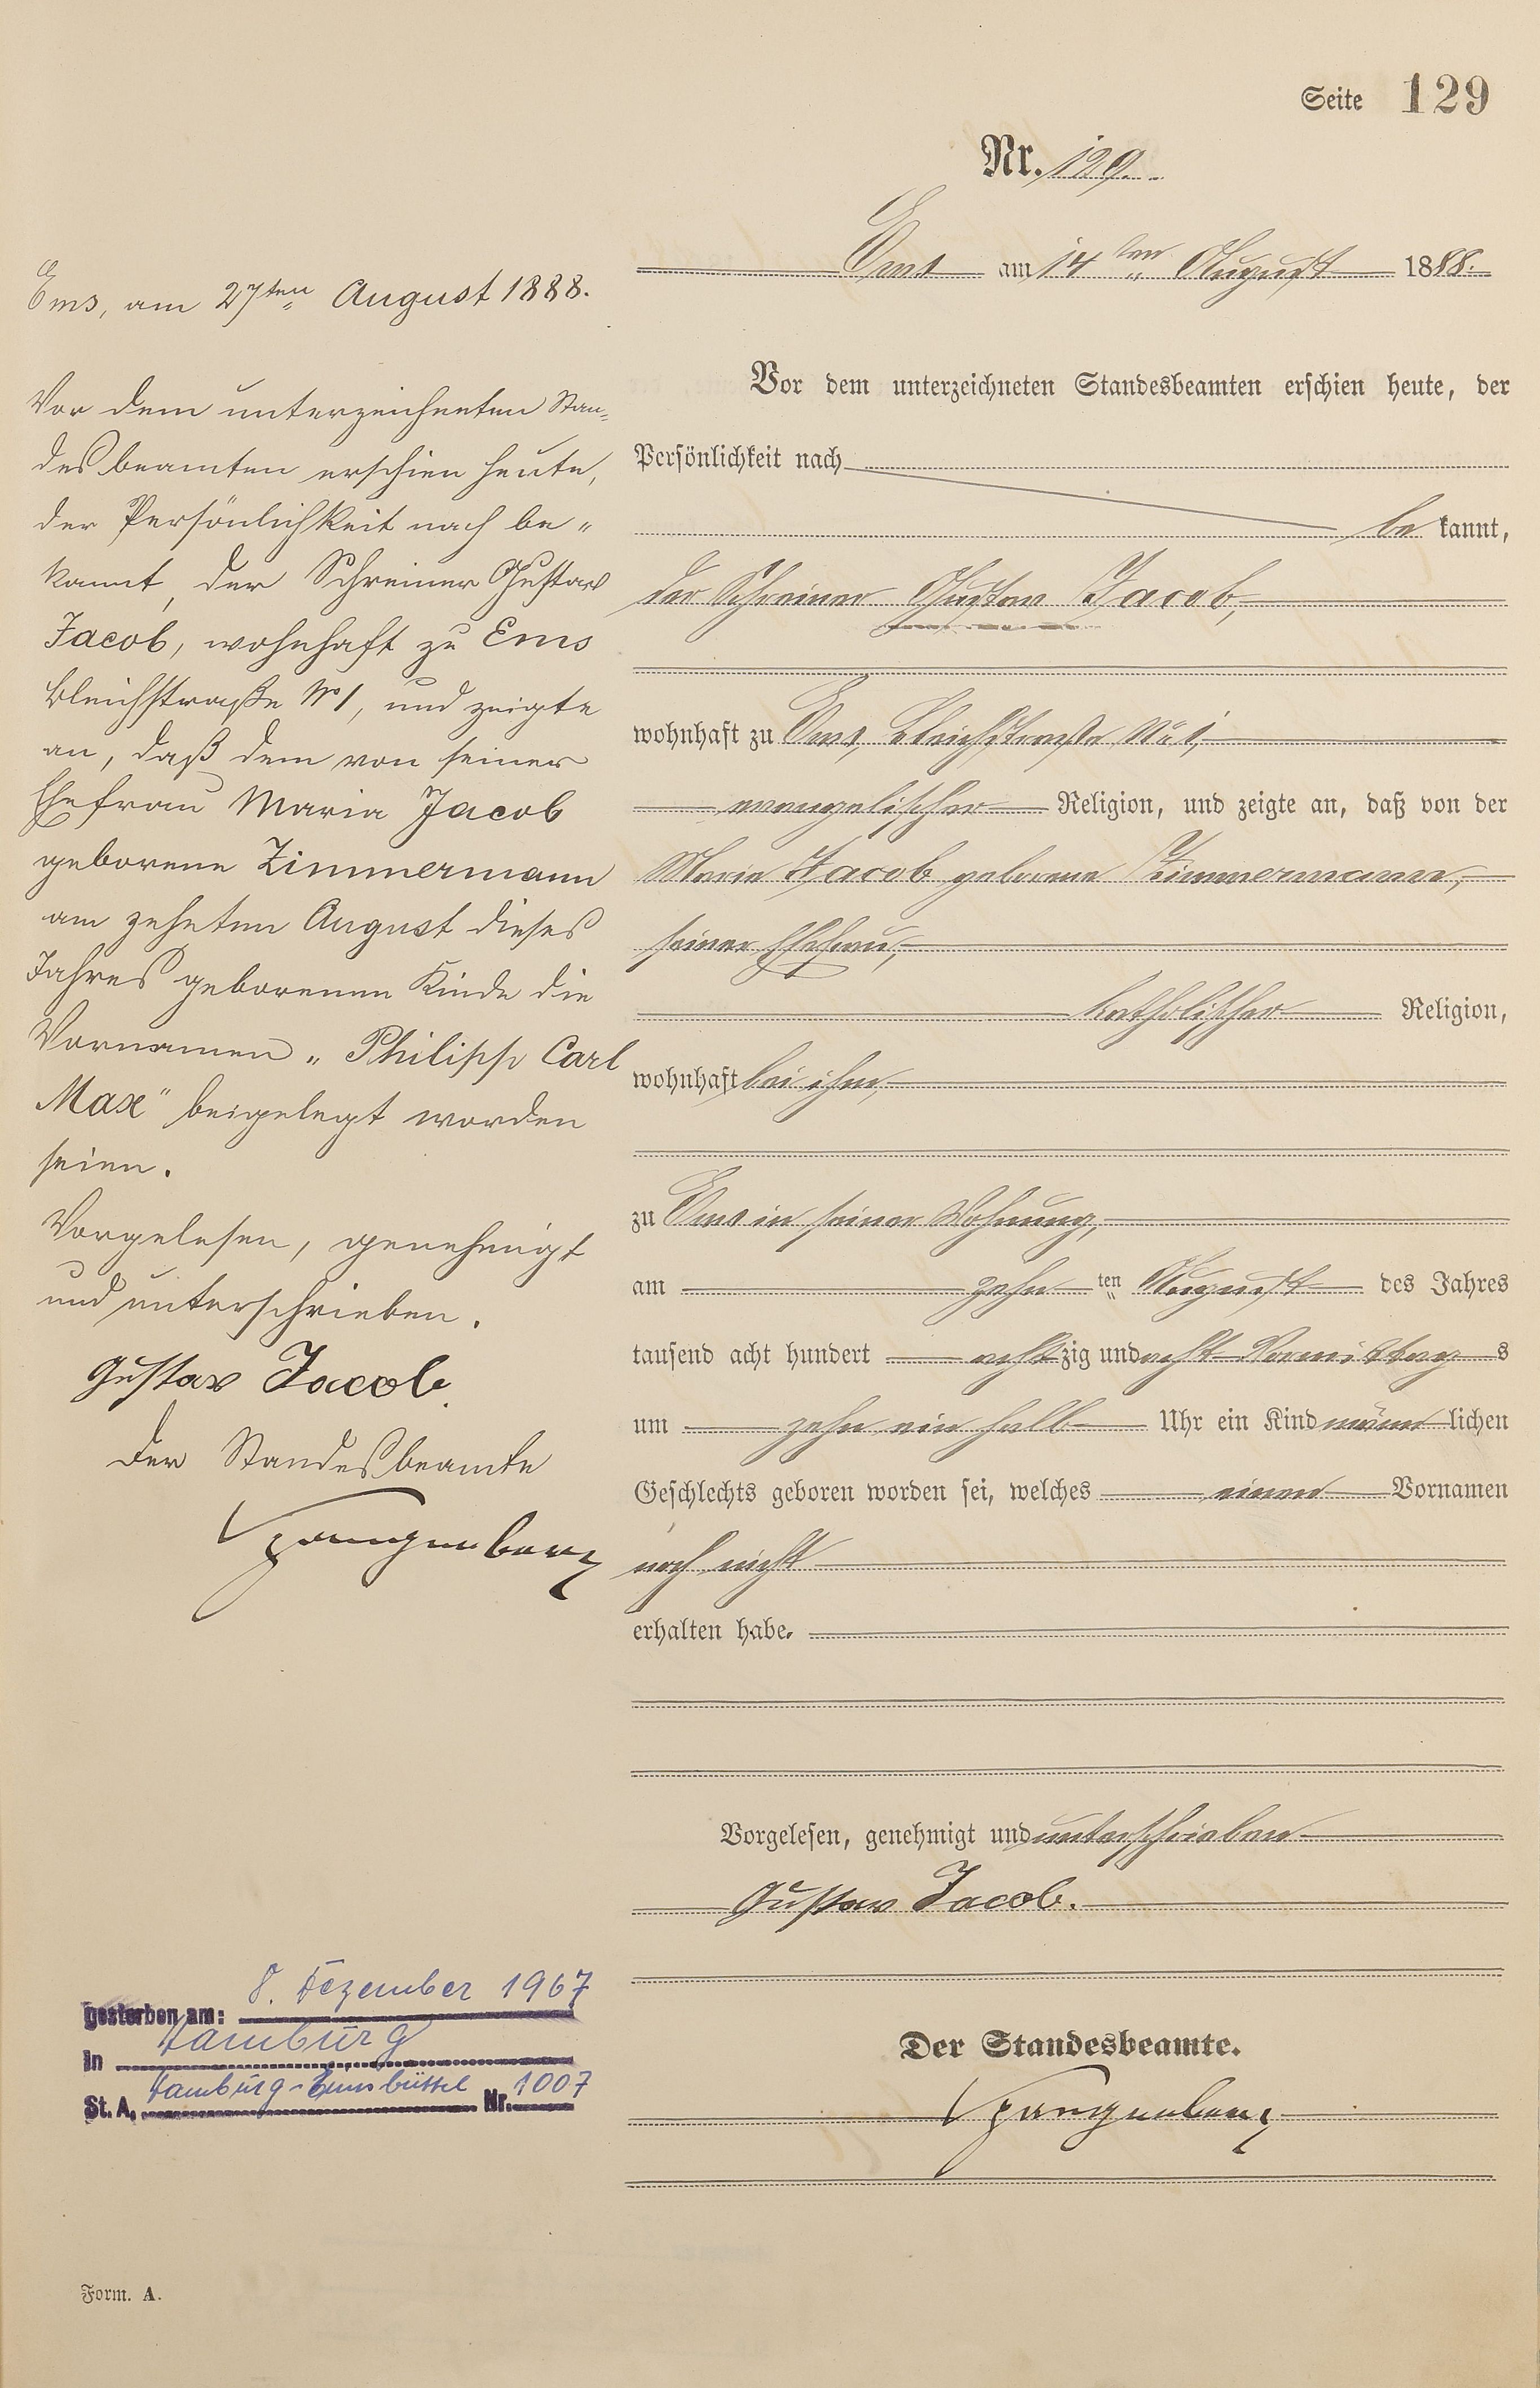 Seite 129
Nr. 129.
Ems am 14ten August 1888.
Vor dem unterzeichneten Standesbeamten erschien heute, der
Persönlichkeit nach
be kannt,
der Schreiner Gustav Jacob,
wohnhaft zu Ems, Bleichstraße No 1,
evangelischer Religion, und zeigte an, daß von der
Maria Jacob geborene Zimmermann,
seiner Ehefrau,
katholischer Religion,
wohnhaft bei ihm,
zu Ems in seiner Wohnung,
am zehn ten August des Jahres
tausend acht hundert acht zig und acht Vormittag s
um zehn ein halb Uhr ein Kind männ lichen
Geschlechts geboren worden sei, welches einen Vornamen
noch nicht
erhalten habe.
Vorgelesen, genehmigt und unterschrieben
Gustav Jacob.
Der Standesbeamte.
Spangenberg
Ems, am 27ten August 1888.
Vor dem unterzeichneten Stan-
desbeamten erschien heute,
der Persönlichkeit nach be-
kannt, der Schreiner Gustav
Jacob, wohnhaft zu Ems
Bleichstraße No 1, und zeigte
an, daß dem von seiner
Ehefrau Maria Jacob
geborene Zimmermann
am zehnten August dieses
Jahres geborenen Kinde die
Vornamen „Philipp Carl
Max" beigelegt worden
seien.
Vorgelesen, genehmigt
und unterschrieben.
Gustav Jacob.
Der Standesbeamte
Spangenberg
gestorben am: 8. Dezember 1967
in Hamburg
St. A. Hamburg-Eimsbüttel Nr. 1007
Form. A.